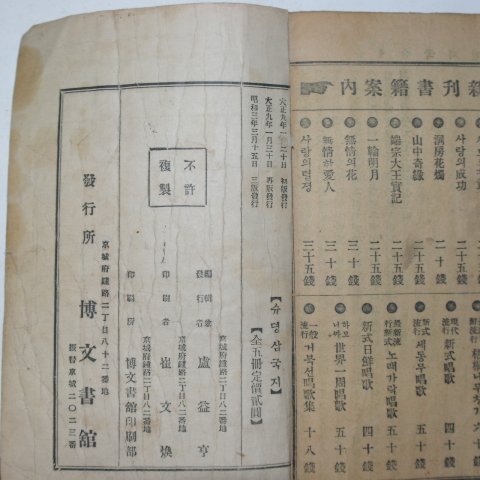 新刊書籍案內
사랑의成功 二十五錢
洞房花燭 三十錢
山中奇緣 二十五錢
端宗大王實記 二十五錢
一輪明月 二十五錢
無情의花 三十錢
無情한愛人 三十錢
사랑의열정 三十五錢
現代流行 新式唱歌
新式流行 세동무唱歌
最新流行 노래가락唱歌 五十錢
新式日鮮唱歌 四十錢
世界一周唱歌 五十錢
一般流行 거북선唱歌集 十八錢
【슈뎡삼국지】
【全五冊定價貳圓】
大正九年一月二十日 初版發行
大正九年一月三十日 再版發行
昭和三年三月十五日 三版發行
不許複製
京城府鍾路二丁目八十二番地
編輯兼發行者 盧益亨
京城府鍾路二丁目八二番地
印刷者 崔文煥
京城府鍾路二丁目八二番地
印刷所 博文書館印刷部
發行所
京城府鍾路二丁目八十二番地
博文書館
振替京城二〇二三番